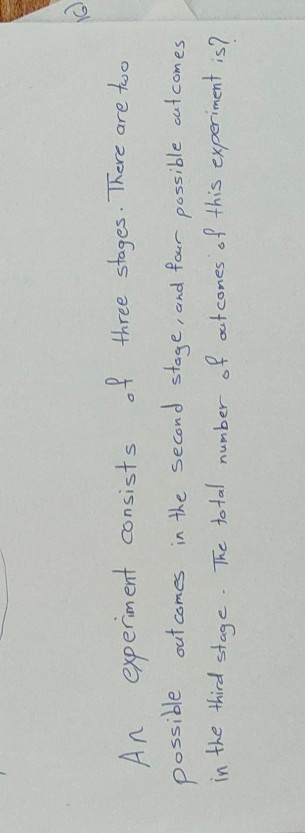 An experiment consists of three stages. There are two
possible outcomes in the second stage, and four possible outcomes
in the third stage. The total number of outcomes of this experiment is?